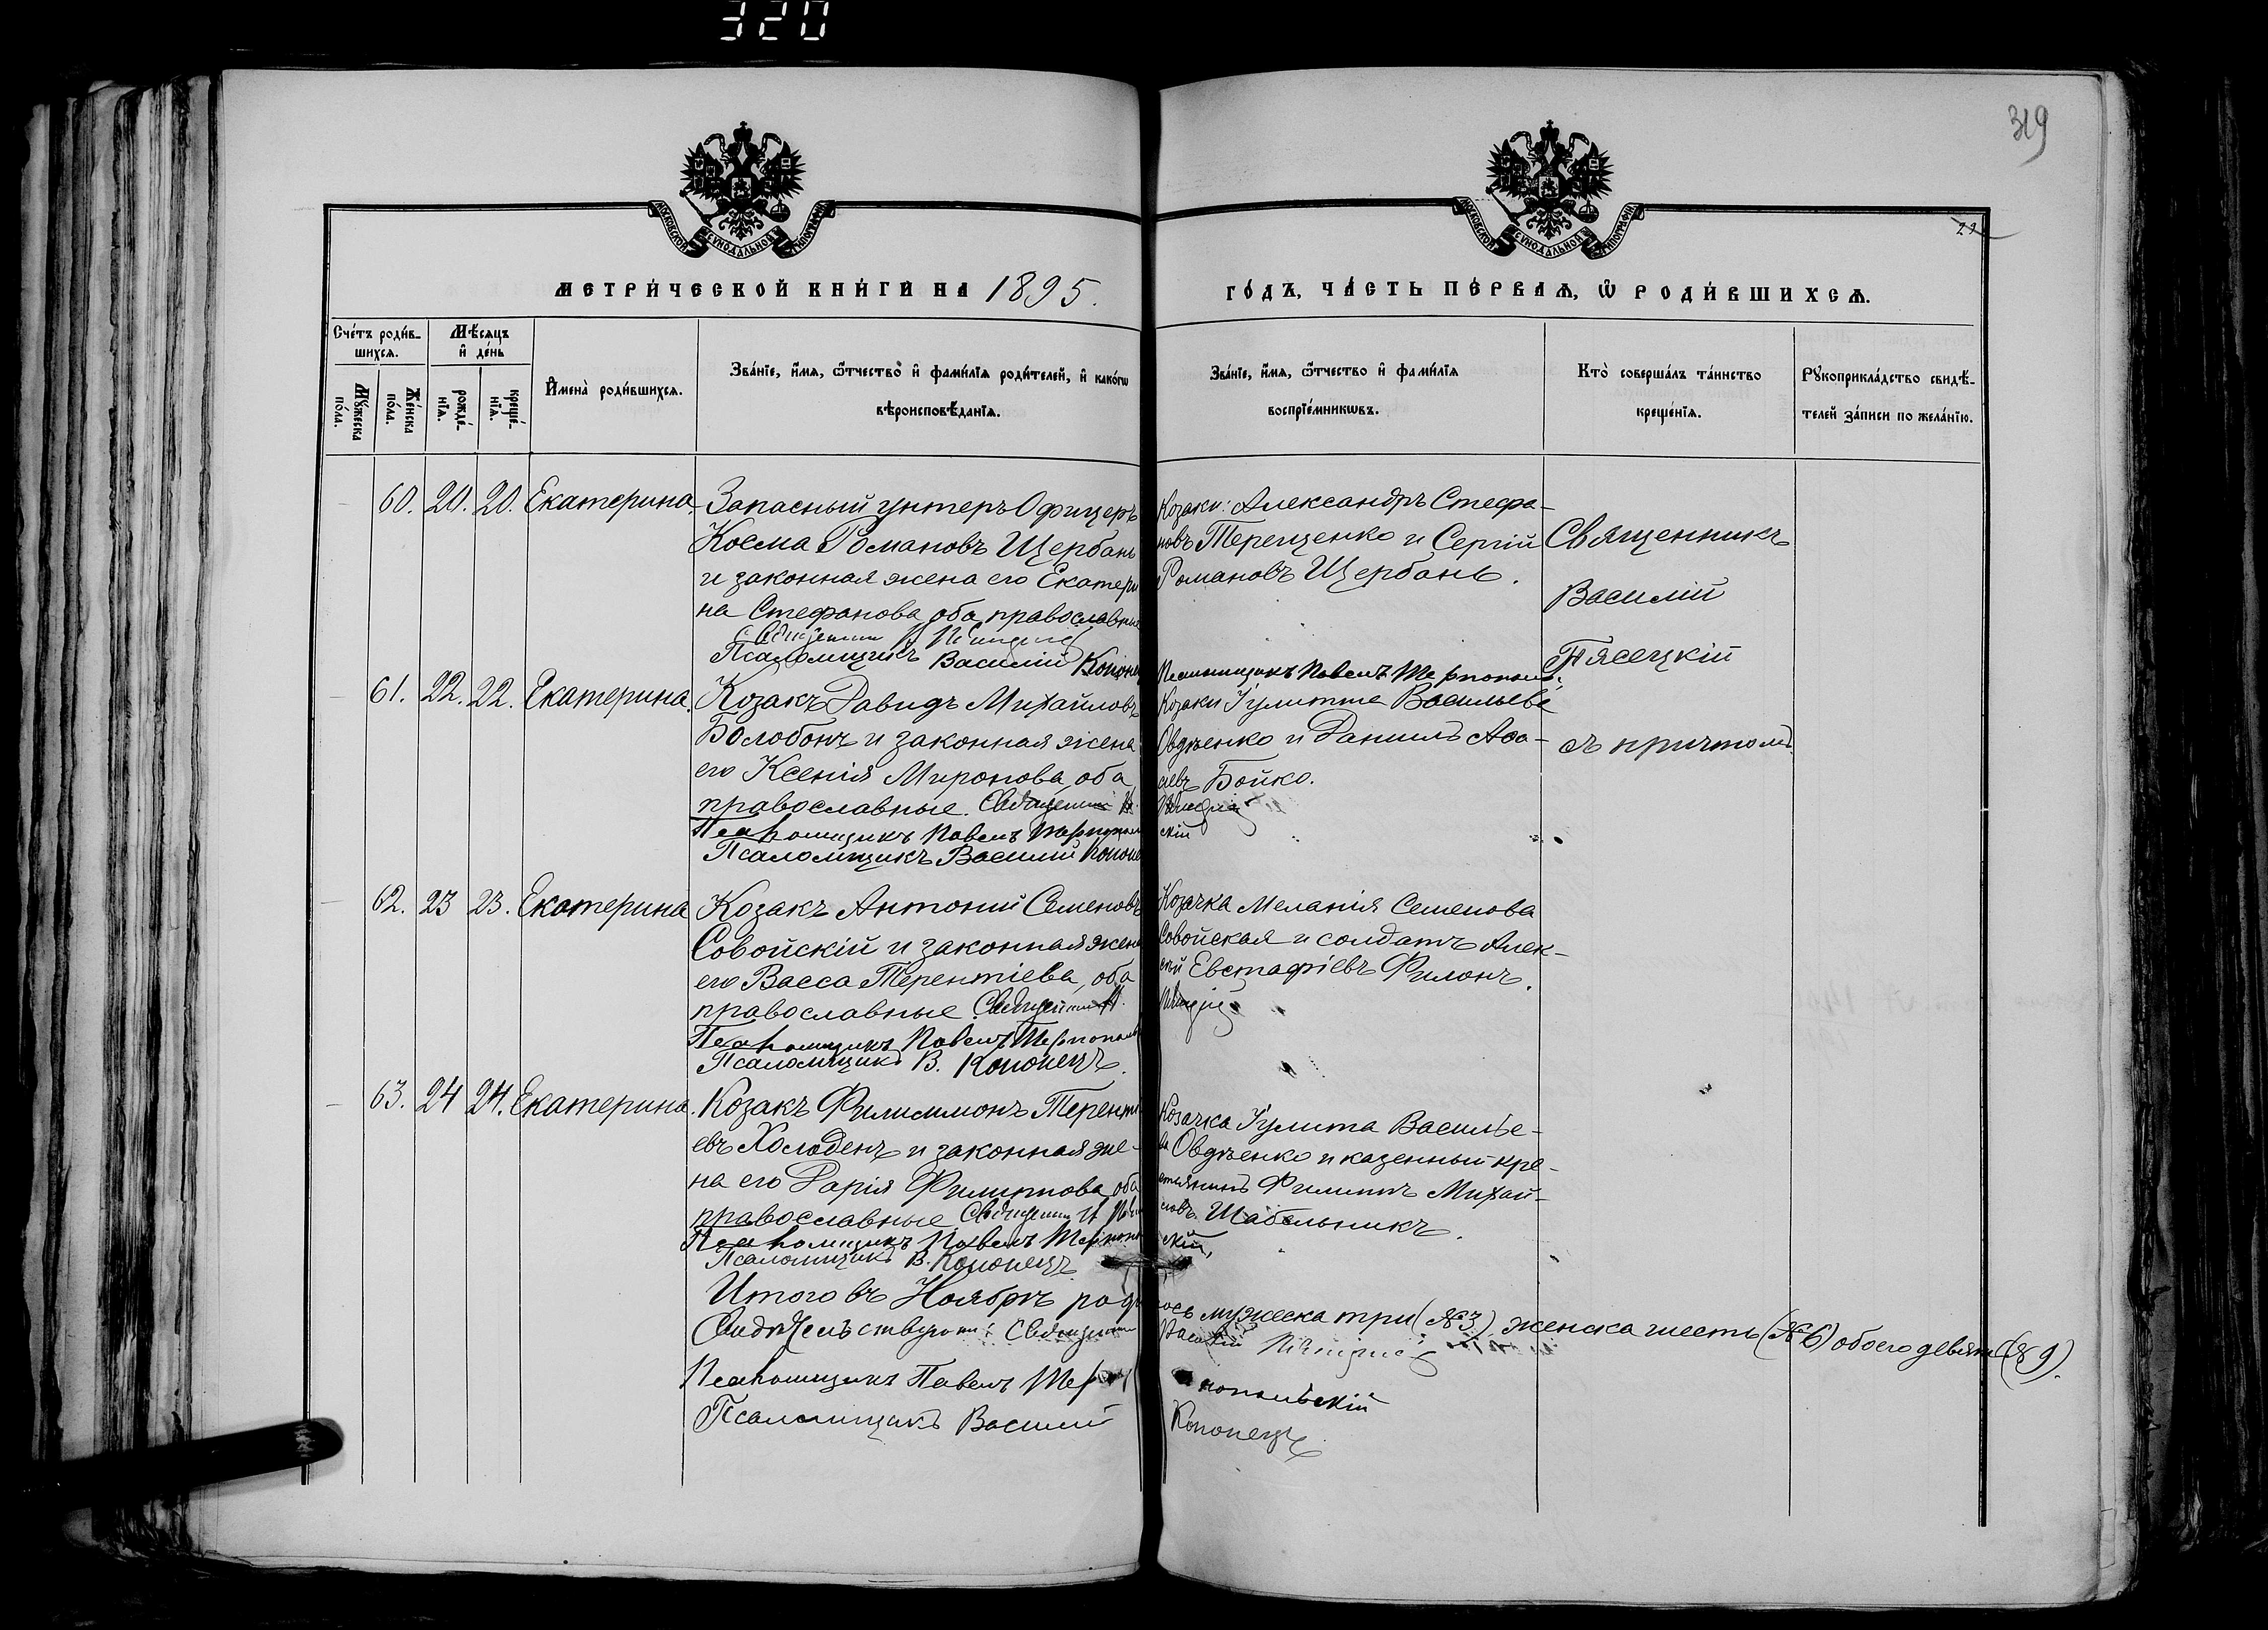 320
319
МОСКОВСКОЙ СѴНОДАЛЬНОЙ ТИПОГРАФІИ
МОСКОВСКОЙ СѴНОДАЛЬНОЙ ТИПОГРАФІИ
МЕТРИ́ЧЕСКОЙ КНИ́ГИ НА 1895.
ГО́ДЪ, ЧА́СТЬ ПЕ́РВАѦ, Ѡ҆ РОДИ́ВШИХСѦ.
Сче́тъ роди́в-
шихсѧ.
Мѣ́сѧцъ
и҆ де́нь
Мꙋ́жеска
по́ла.
Же́нска
по́ла.
рожде́-
нїѧ.
креще́-
нїѧ.
И҆мена̀ роди́вшихсѧ.
Зва́нїе, и҆́мѧ, ѻ҆́тчество и҆ фами́лїѧ роди́телей, и҆ како́гѡ
вѣроисповѣ́данїѧ.
Зва́нїе, и҆́мѧ, ѻ҆́тчество и҆ фами́лїѧ
воспрїе́мникѡвъ.
Кто̀ соверша́лъ та́инство
креще́нїѧ.
Рꙋкоприкла́дство свидѣ́-
телей за́писи по жела́нїю.
60. 20. 20. Екатерина.
Запасный унтеръ Офицеръ
Косма Романовъ Щербань
и законная жена его Екатери
на Стефанова, оба православные
Псаломщикъ Василій Кононец
Козаки: Александръ Стефа-
новъ Терещенко и Сергій
Романовъ Щербань.
Священникъ
Василій
Пясецкій
съ причтомъ
61. 22. 22. Екатерина.
Козакъ Давидъ Михайловъ
Болобонъ и законная жена
его Ксенія Миронова, оба
православные. Священник
Псаломщикъ Павелъ Тернополь
Псаломщикъ Василій Кононе
Псаломщикъ Павелъ Тернополь
Козаки Іулитта Васильева
Овдѣенко и Даниилъ
Бойко.
скій
62. 23 23. Екатерина
Козакъ Антоній Семеновъ
Совойскій и законная жена
его Васса Терентіева, оба
православные. Священник
Псаломщикъ Павелъ Тернополь
Псаломщикъ В. Кононецъ.
Козачка Меланія Семенова
Совойская и солдатъ Алек-
сѣй Евстафіевъ Филонъ.
63. 24 24. Екатерина.
Козакъ Филимонъ Теренті
евъ Холоденъ и законная же-
на его Дарія Филиппова, оба
православные. Священник
Псаломщикъ Павелъ Тернополь
Псаломщикъ В. Кононецъ.
Козачка Іулита Василье-
ва Овдѣенко и казенный кре-
стьянинъ Филиппъ Михай-
ловъ Шабельникъ.
скій,
Итого въ Ноябрѣ родилось мужеска три (№3), женска шесть (№6) обоего девять (№9).
Свидѣтельствуютъ: Священник Василій Пясецкій
Псаломщикъ Павелъ Тернопольскій
Псаломщикъ Василій Кононецъ